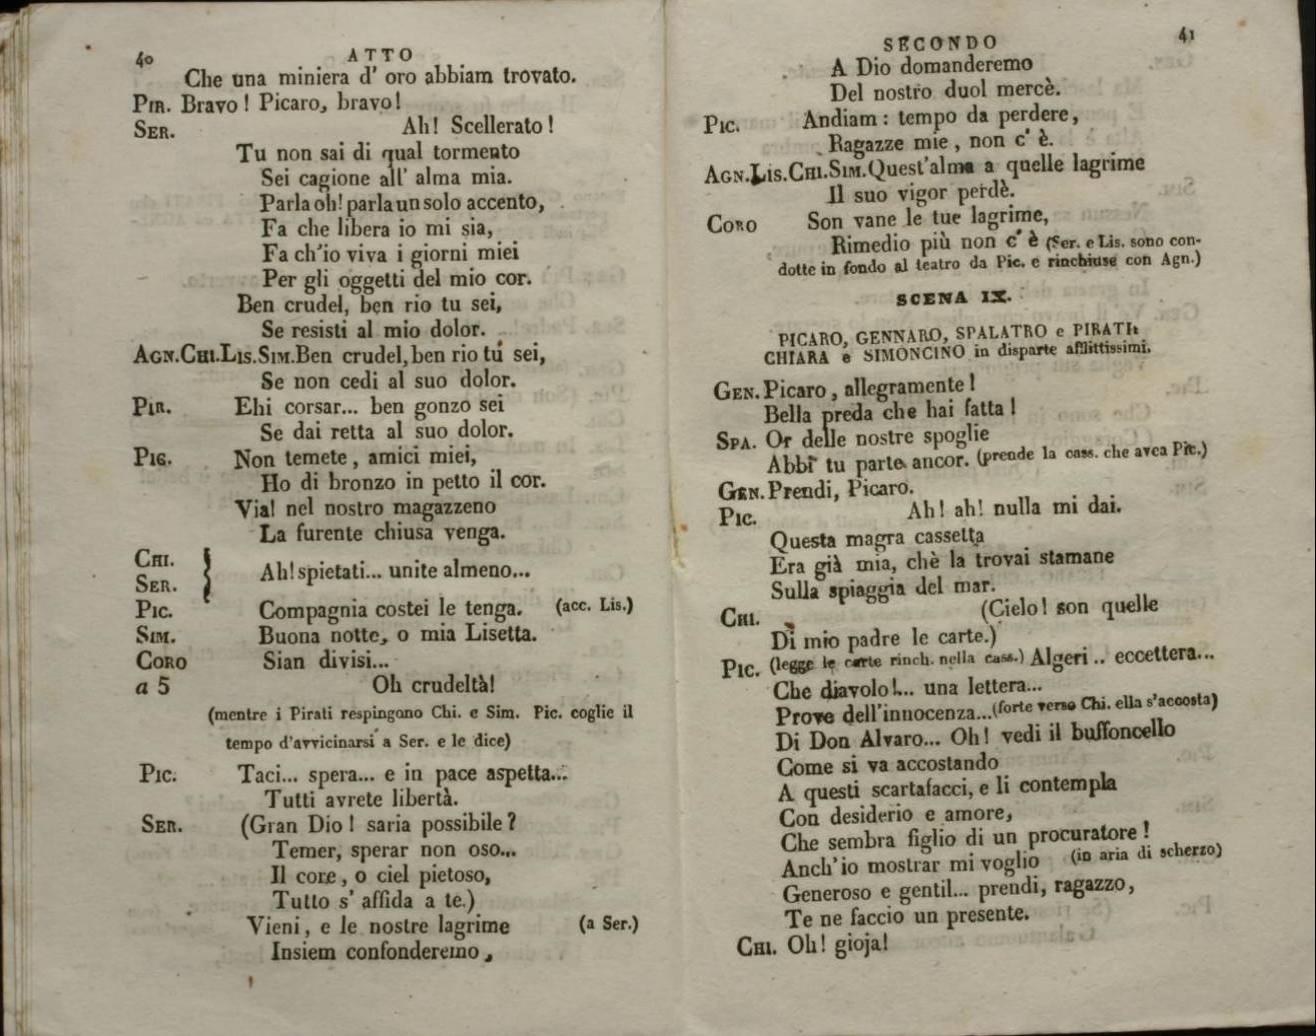 40 ATTO
Che una miniera d' oro abbiam trovato.
PIR. Bravo! Picaro, bravo!
SER. Ah! Scellerato!
Tu non sai di qual tormento
Sei cagione all' alma mia.
Parla oh! parla un solo accento,
Fa che libera io mi sia,
Fa ch'io viva i giorni miei
Per gli oggetti del mio cor.
Ben crudel, ben rio tu sei,
Se resisti al mio dolor.
AGN. CHI. LIS. SIM. Ben crudel, ben rio tu sei,
Se non cedi al suo dolor.
PIR. Ehi corsar... ben gonzo sei
Se dai retta al suo dolor.
PIG. Non temete, amici miei,
Ho di bronzo in petto il cor.
Via! nel nostro magazzeno
La furente chiusa venga.
CHI. }
SER. } Ah! spietati... unite almeno...
PIC. Compagnia costei le tenga. (acc. Lis.)
SIM. Buona notte, o mia Lisetta.
CORO Sian divisi...
a 5 Oh crudeltà!
(mentre i Pirati respingono Chi. e Sim. Pic. coglie il
tempo d'avvicinarsi a Ser. e le dice)
PIC. Taci... spera... e in pace aspetta...
Tutti avrete libertà.
SER. (Gran Dio! saria possibile?
Temer, sperar non oso...
Il core, o ciel pietoso,
Tutto s' affida a te.)
Vieni, e le nostre lagrime (a Ser.)
Insiem confonderemo,
SECONDO 41
A Dio domanderemo
Del nostro duol mercè.
PIC. Andiam: tempo da perdere,
Ragazze mie, non c' è.
AGN. LIS. CHI. SIM. Quest'alma a quelle lagrime
Il suo vigor perdè.
CORO Son vane le tue lagrime,
Rimedio più non c' è (Ser. e Lis. sono con-
dotte in fondo al teatro da Pic. e rinchiuse con Agn.)
SCENA IX.
PICARO, GENNARO, SPALATRO e PIRATI:
CHIARA e SIMONCINO in disparte afflittissimi.
GEN. Picaro, allegramente!
Bella preda che hai fatta!
SPA. Or delle nostre spoglie
Abbi tu parte ancor. (prende la cass. che avea Pic.)
GEN. Prendi, Picaro.
PIC. Ah! ah! nulla mi dai.
Questa magra cassetta
Era già mia, chè la trovai stamane
Sulla spiaggia del mar.
CHI. (Cielo! son quelle
Di mio padre le carte.)
PIC. (legge le carte rinch. nella cass.) Algeri .. eccettera...
Che diavolo!... una lettera...
Prove dell'innocenza... (forte verso Chi. ella s'accosta)
Di Don Alvaro... Oh! vedi il buffoncello
Come si va accostando
A questi scartafacci, e li contempla
Con desiderio e amore,
Che sembra figlio di un procuratore!
Anch'io mostrar mi voglio (in aria di scherzo)
Generoso e gentil... prendi, ragazzo,
Te ne faccio un presente.
CHI. Oh! gioja!